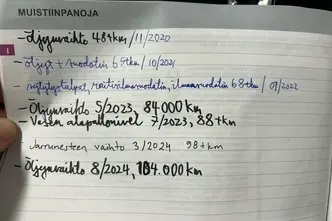 MUISTIINPANOJA
- Öljynvaihto 48tkm/11/2020
- öljyt + suodatin 65tkm / 10/2021
- sytytystulpat, raitisilmasuodatin, ilmansuodatin 68tkm / 09/2022
- Öljynvaihto 5/2023, 84000km
- Vasen alapallonivel 7/2023, 88tkm
- Jarrunesteen vaihto 3/2024 98tkm
- Öljynvaihto 8/2024, 104.000km